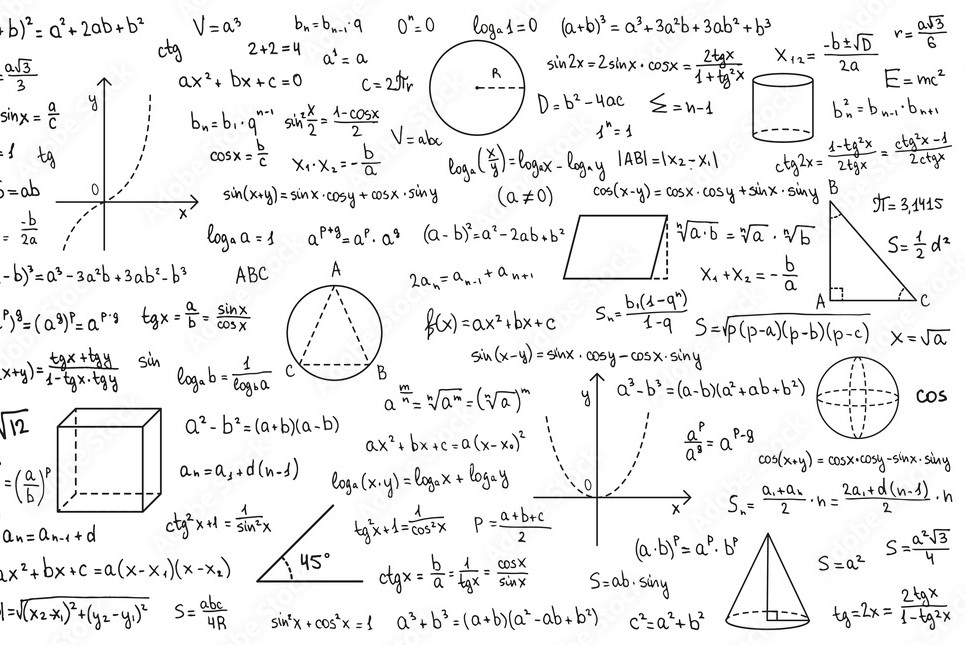 +b)² = a² + 2ab + b²
V = a³
bₙ = bₙ₋₁ · q
0ⁿ = 0
logₐ1 = 0
(a+b)³ = a³ + 3a²b + 3ab² + b³
r = a√3/6
ctg
2+2=4
a¹ = a
x₁,₂ = (-b±√D)/2a
a√3/3
ax² + bx + c = 0
c = 2πr
R
sin2x = 2sinx · cosx = 2tgx/(1+tg²x)
E = mc²
y
sinx = a/c
bₙ = b₁ · qⁿ⁻¹
sin² x/2 = (1-cosx)/2
D = b² - 4ac
Σ = n-1
bₙ² = bₙ₋₁ · bₙ₊₁
V = abc
1ⁿ = 1
= 1
tg
cosx = b/c
x₁ · x₂ = -b/a
logₐ(x/y) = logₐx - logₐy
|AB| = |x₂ - x₁|
ctg2x = (1-tg²x)/2tgx = (ctg²x-1)/2ctgx
S = ab
0
x
sin(x+y) = sinx · cosy + cosx · siny
(a ≠ 0)
cos(x-y) = cosx · cosy + sinx · siny
B
π = 3,1415
= -b/2a
logₐ a = 1
aᵖ⁺ᵍ = aᵖ · aᵍ
(a-b)² = a² - 2ab + b²
ⁿ√(a·b) = ⁿ√a · ⁿ√b
S = 1/2 d²
-b)³ = a³ - 3a²b + 3ab² - b³
ABC
A
2aₙ = aₙ₋₁ + aₙ₊₁
x₁ + x₂ = -b/a
A
C
ᵖ)ᵍ = (aᵍ)ᵖ = aᵖ·ᵍ
tgx = a/b = sinx/cosx
f(x) = ax² + bx + c
Sₙ = b₁(1-qⁿ)/(1-q)
S = √(p(p-a)(p-b)(p-c))
x = √a
x+y) = (tgx+tgy)/(1-tgx·tgy)
sin
logₐb = 1/log_b a
C
B
sin(x-y) = sinx · cosy - cosx · siny
a^(m/n) = ⁿ√aᵐ = (ⁿ√a)ᵐ
y
a³ - b³ = (a-b)(a² + ab + b²)
cos
√12
a² - b² = (a+b)(a-b)
ax² + bx + c = a(x-x₀)²
aᵖ/aᵍ = aᵖ⁻ᵍ
= (a/b)ᵖ
aₙ = a₁ + d(n-1)
logₐ(x·y) = logₐx + logₐy
0
x
cos(x+y) = cosx·cosy - sinx · siny
aₙ = aₙ₋₁ + d
ctg²x + 1 = 1/sin²x
tg²x + 1 = 1/cos²x
P = (a+b+c)/2
Sₙ = (a₁+aₙ)/2 · n = (2a₁+d(n-1))/2 · n
ax² + bx + c = a(x-x₁)(x-x₂)
45°
ctgx = b/a = 1/tgx = cosx/sinx
(a·b)ᵖ = aᵖ · bᵖ
S = ab · siny
S = a²
S = a²√3/4
l = √((x₂-x₁)² + (y₂-y₁)²)
S = abc/4R
sin²x + cos²x = 1
a³ + b³ = (a+b)(a² - ab + b²)
c² = a² + b²
tg = 2x = 2tgx/(1-tg²x)